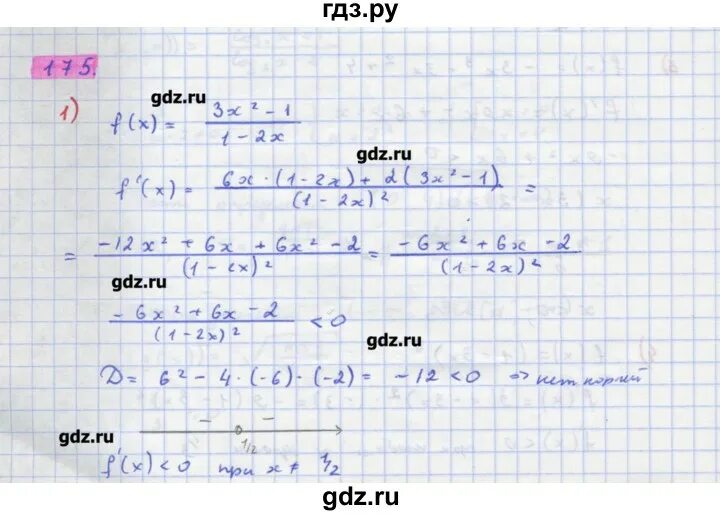 гдз.ру
175.
1)
gdz.ru
f(x) = (3x² - 1)/(1 - 2x)
gdz.ru
f'(x) = (6x·(1-2x) + 2(3x²-1))/(1-2x)² =
= (-12x² + 6x + 6x² - 2)/(1-2x)² = (-6x² + 6x - 2)/(1-2x)²
gdz.ru
(-6x² + 6x - 2)/(1-2x)² < 0
gdz.ru
D = 6² - 4·(-6)·(-2) = -12 < 0 ⇒ нет корней
gdz.ru
- -
1/2
f'(x) < 0 при x ≠ 1/2
gdz.ru